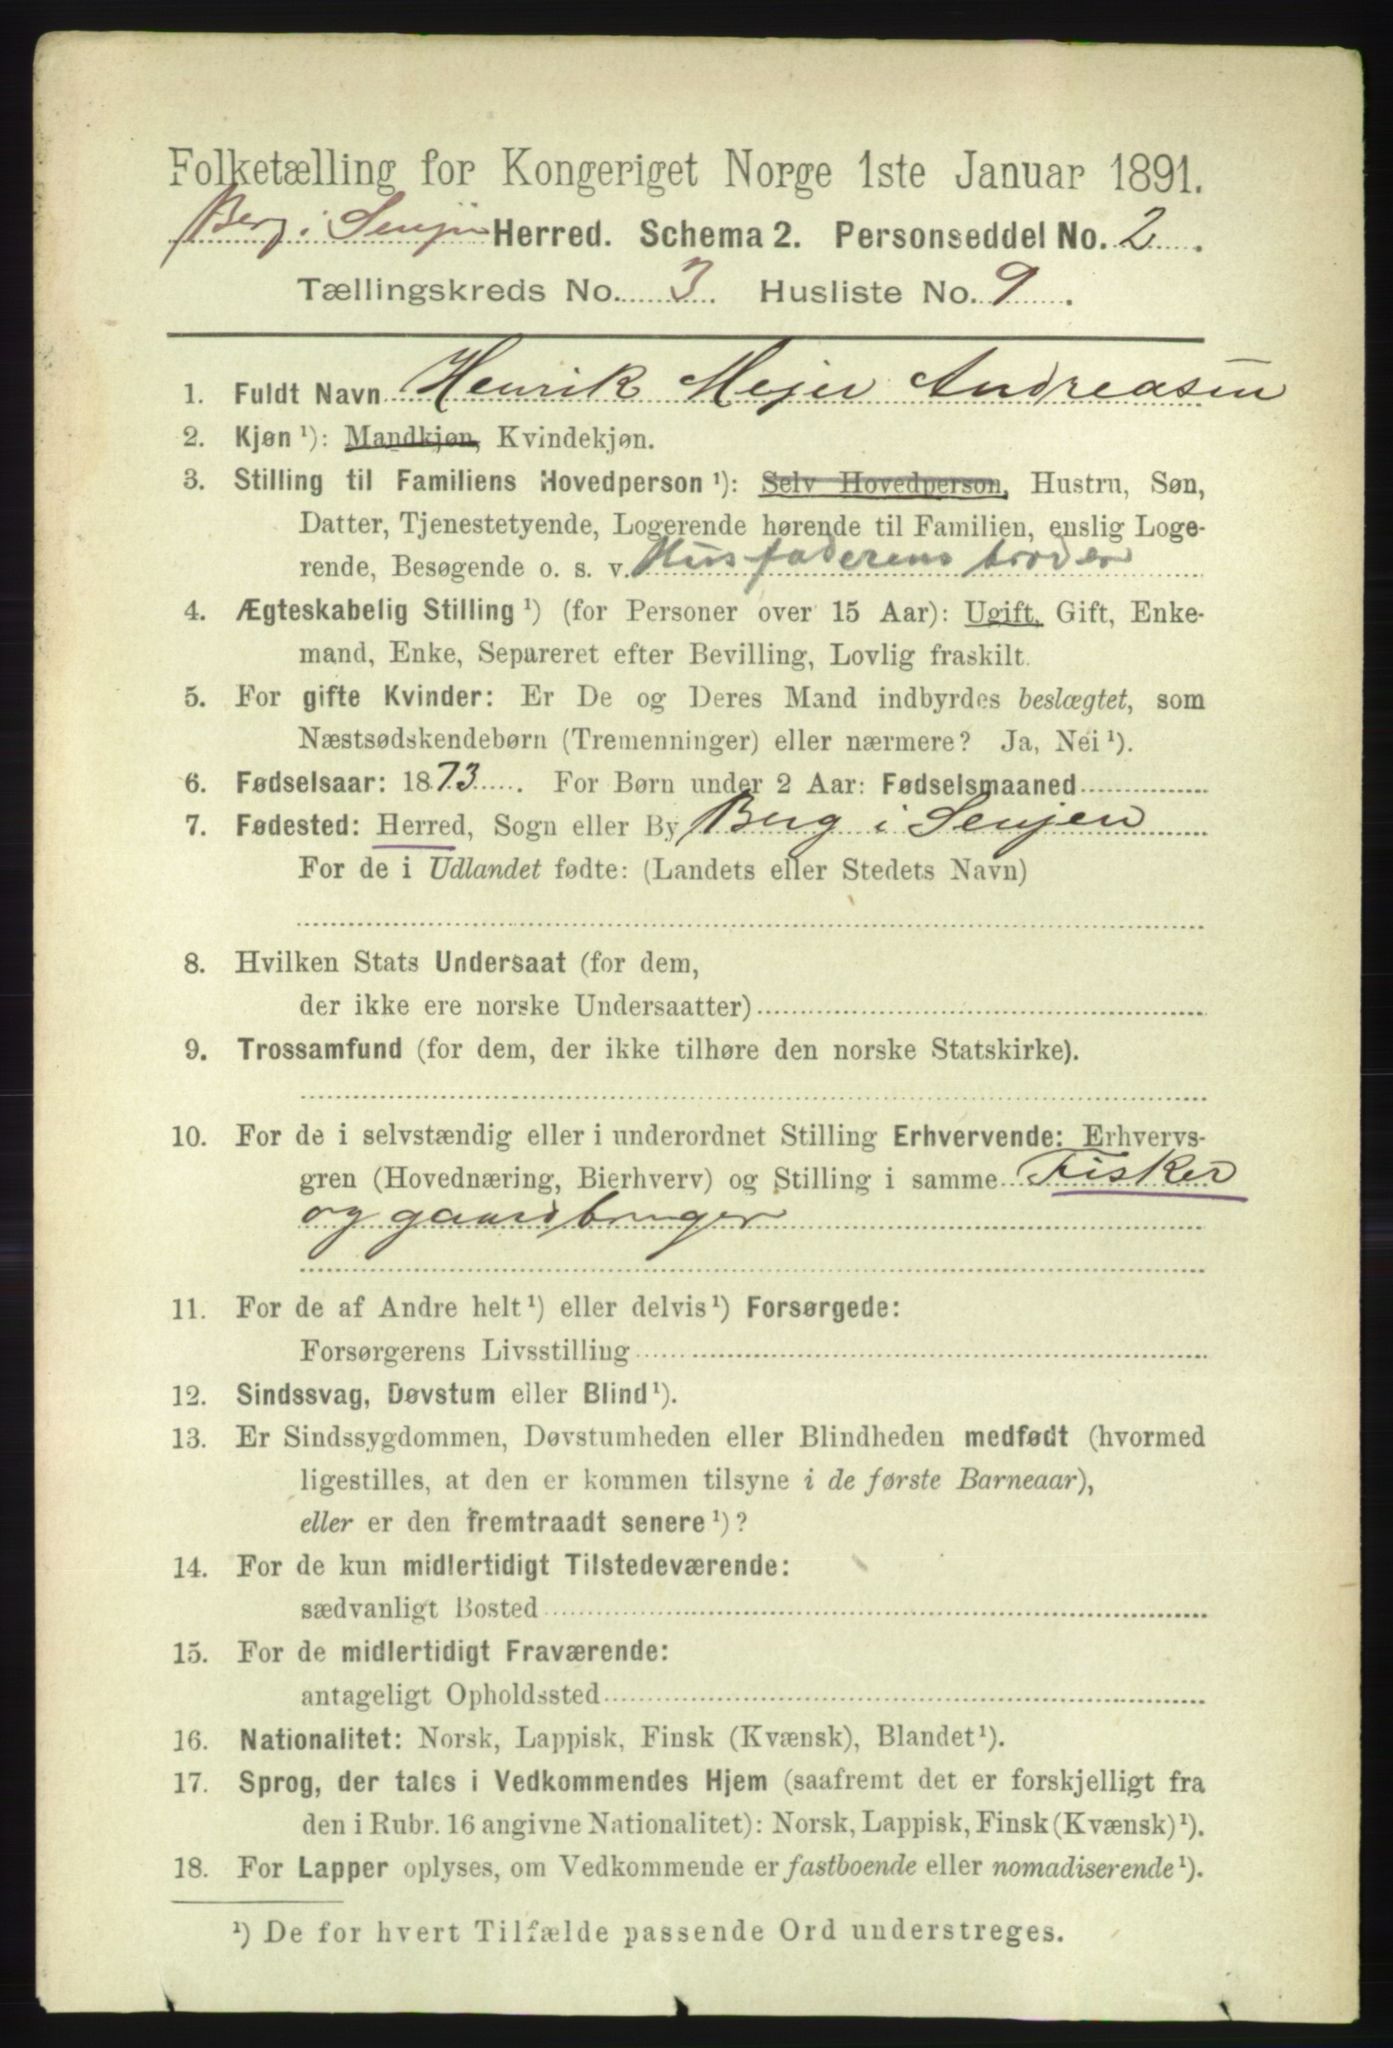 Folketælling for Kongeriget Norge 1ste Januar 1891.
Berg i Senjen Herred. Schema 2. Personseddel No. 2.
Tællingskreds No. 3. Husliste No. 9.
1. Fuldt Navn Henrik Mejer Andreasen
2. Kjøn ¹): Mandkjøn, Kvindekjøn.
3. Stilling til Familiens Hovedperson ¹): Selv Hovedperson, Hustru, Søn,
Datter, Tjenestetyende, Logerende hørende til Familien, enslig Loge-
rende, Besøgende o. s. v. Husfaderens broder
4. Ægteskabelig Stilling ¹) (for Personer over 15 Aar): Ugift, Gift, Enke-
mand, Enke, Separeret efter Bevilling, Lovlig fraskilt.
5. For gifte Kvinder: Er De og Deres Mand indbyrdes beslægtet, som
Næstsødskendebørn (Tremenninger) eller nærmere? Ja, Nei ¹).
6. Fødselsaar: 1873. For Børn under 2 Aar: Fødselsmaaned
7. Fødested: Herred, Sogn eller By Berg i Senjen
For de i Udlandet fødte: (Landets eller Stedets Navn)
8. Hvilken Stats Undersaat (for dem,
der ikke ere norske Undersaatter)
9. Trossamfund (for dem, der ikke tilhøre den norske Statskirke).
10. For de i selvstændig eller i underordnet Stilling Erhvervende: Erhvervs-
gren (Hovednæring, Bierhverv) og Stilling i samme Fisker
og gaardbruger
11. For de af Andre helt ¹) eller delvis ¹) Forsørgede:
Forsørgerens Livsstilling
12. Sindssvag, Døvstum eller Blind ¹).
13. Er Sindssygdommen, Døvstumheden eller Blindheden medfødt (hvormed
ligestilles, at den er kommen tilsyne i de første Barneaar),
eller er den fremtraadt senere ¹)?
14. For de kun midlertidigt Tilstedeværende:
sædvanligt Bosted
15. For de midlertidigt Fraværende:
antageligt Opholdssted
16. Nationalitet: Norsk, Lappisk, Finsk (Kvænsk), Blandet ¹).
17. Sprog, der tales i Vedkommendes Hjem (saafremt det er forskjelligt fra
den i Rubr. 16 angivne Nationalitet): Norsk, Lappisk, Finsk (Kvænsk) ¹).
18. For Lapper oplyses, om Vedkommende er fastboende eller nomadiserende ¹).
¹) De for hvert Tilfælde passende Ord understreges.